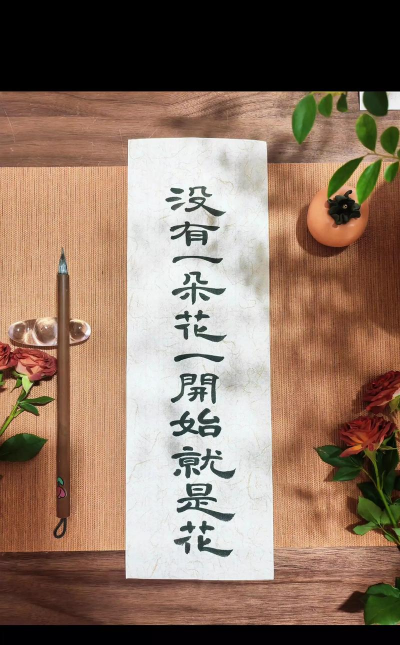 没有一朵花一開始就是花